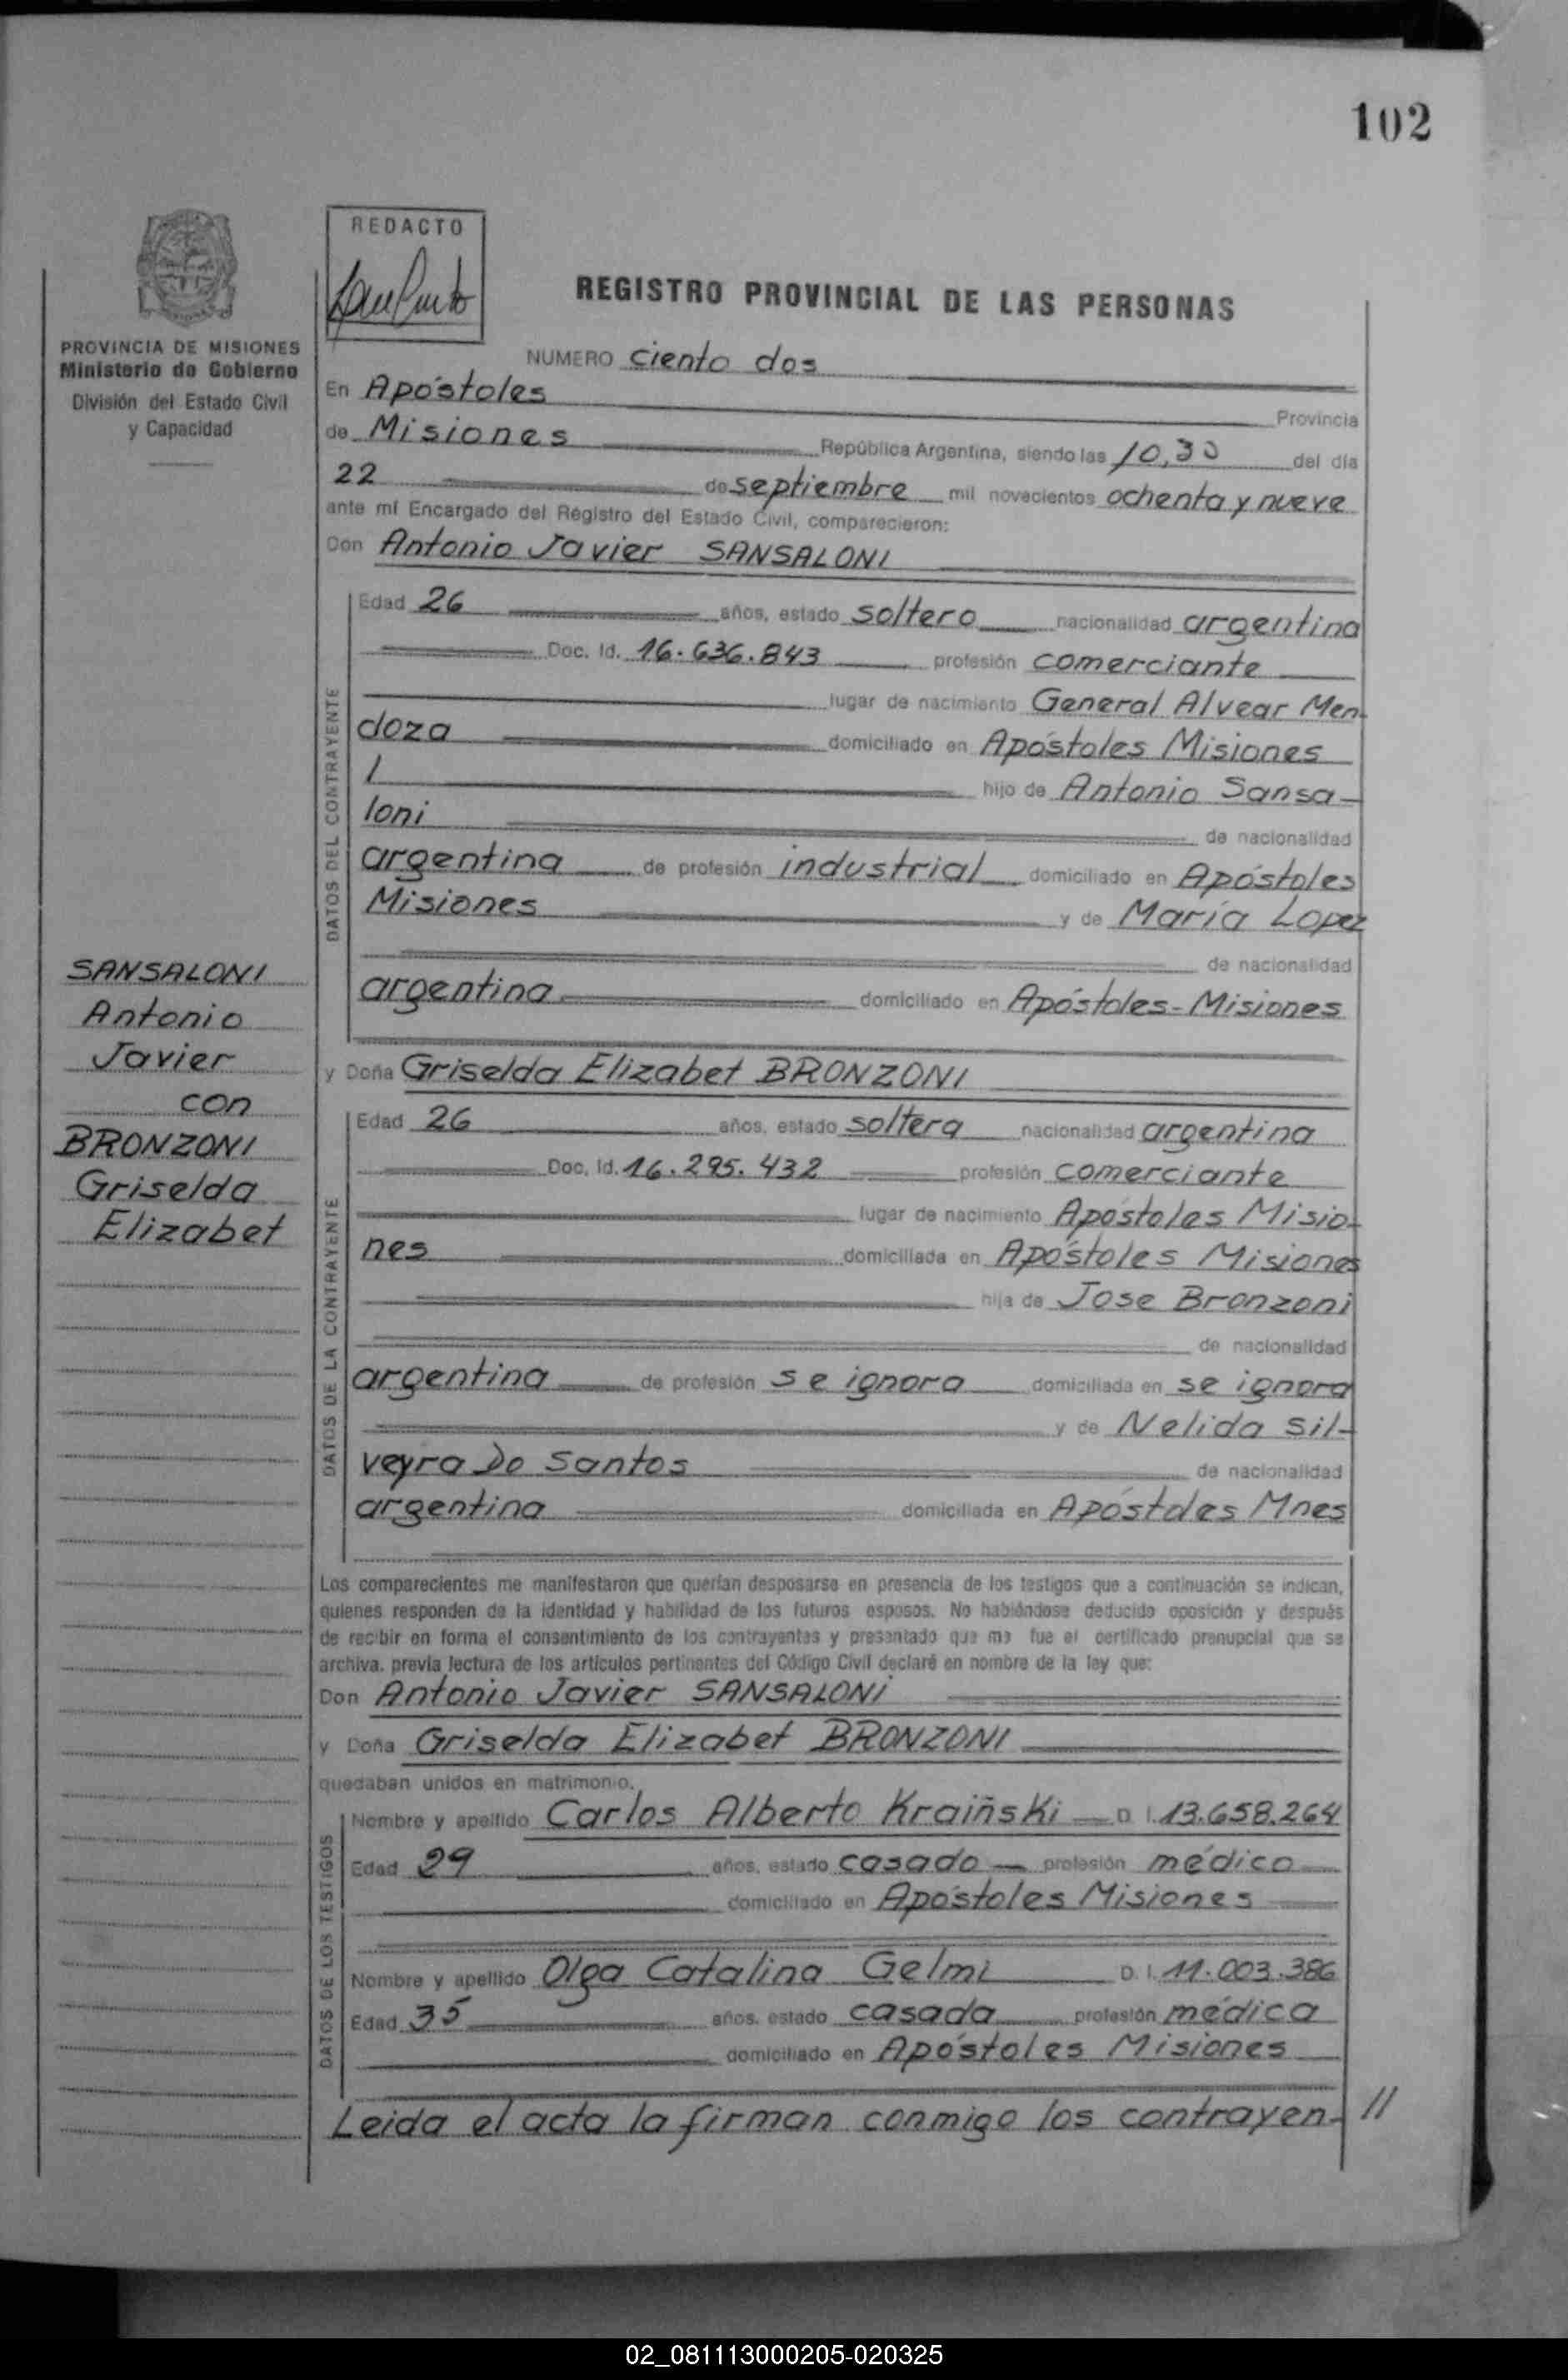 102
REDACTO
PROVINCIA DE MISIONES
Ministerio de Gobierno
División del Estado Civil
y Capacidad
REGISTRO PROVINCIAL DE LAS PERSONAS
NUMERO ciento dos
En Apóstoles Provincia
de Misiones República Argentina, siendo las 10,30 del día
22 de septiembre mil novecientos ochenta y nueve
ante mí Encargado del Registro del Estado Civil, comparecieron:
Don Antonio Javier SANSALONI
DATOS DEL CONTRAYENTE
Edad 26 años, estado soltero nacionalidad argentina
Doc. Id. 16.636.843 profesión comerciante
lugar de nacimiento General Alvear Men-
doza domiciliado en Apóstoles Misiones
hijo de Antonio Sansa-
loni de nacionalidad
argentina de profesión industrial domiciliado en Apóstoles
Misiones y de María Lopez
de nacionalidad
argentina domiciliado en Apóstoles-Misiones
SANSALONI
Antonio
Javier
con
BRONZONI
Griselda
Elizabet
y Doña Griselda Elizabet BRONZONI
DATOS DE LA CONTRAYENTE
Edad 26 años, estado soltera nacionalidad argentina
Doc. Id. 16.295.432 profesión comerciante
lugar de nacimiento Apóstoles Misio-
nes domiciliada en Apóstoles Misiones
hija de Jose Bronzoni
de nacionalidad
argentina de profesión se ignora domiciliada en se ignora
y de Nelida Sil-
veyra Do Santos de nacionalidad
argentina domiciliada en Apóstoles Mnes
Los comparecientes me manifestaron que querían desposarse en presencia de los testigos que a continuación se indican,
quienes responden de la identidad y habilidad de los futuros esposos. No habiéndose deducido oposición y después
de recibir en forma el consentimiento de los contrayentes y presentado que me fue el certificado prenupcial que se
archiva, previa lectura de los artículos pertinentes del Código Civil declaré en nombre de la ley que:
Don Antonio Javier SANSALONI
y Doña Griselda Elizabet BRONZONI
quedaban unidos en matrimonio.
DATOS DE LOS TESTIGOS
Nombre y apellido Carlos Alberto Kraiñski D. I. 13.658.264
Edad 29 años, estado casado profesión médico
domiciliado en Apóstoles Misiones
Nombre y apellido Olga Catalina Gelmi D. I. 11.003.386
Edad 35 años, estado casada profesión médica
domiciliado en Apóstoles Misiones
Leida el acta la firman conmigo los contrayen- //
02_081113000205-020325